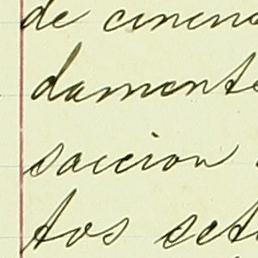 de cincuen
damente
saccion
tos set